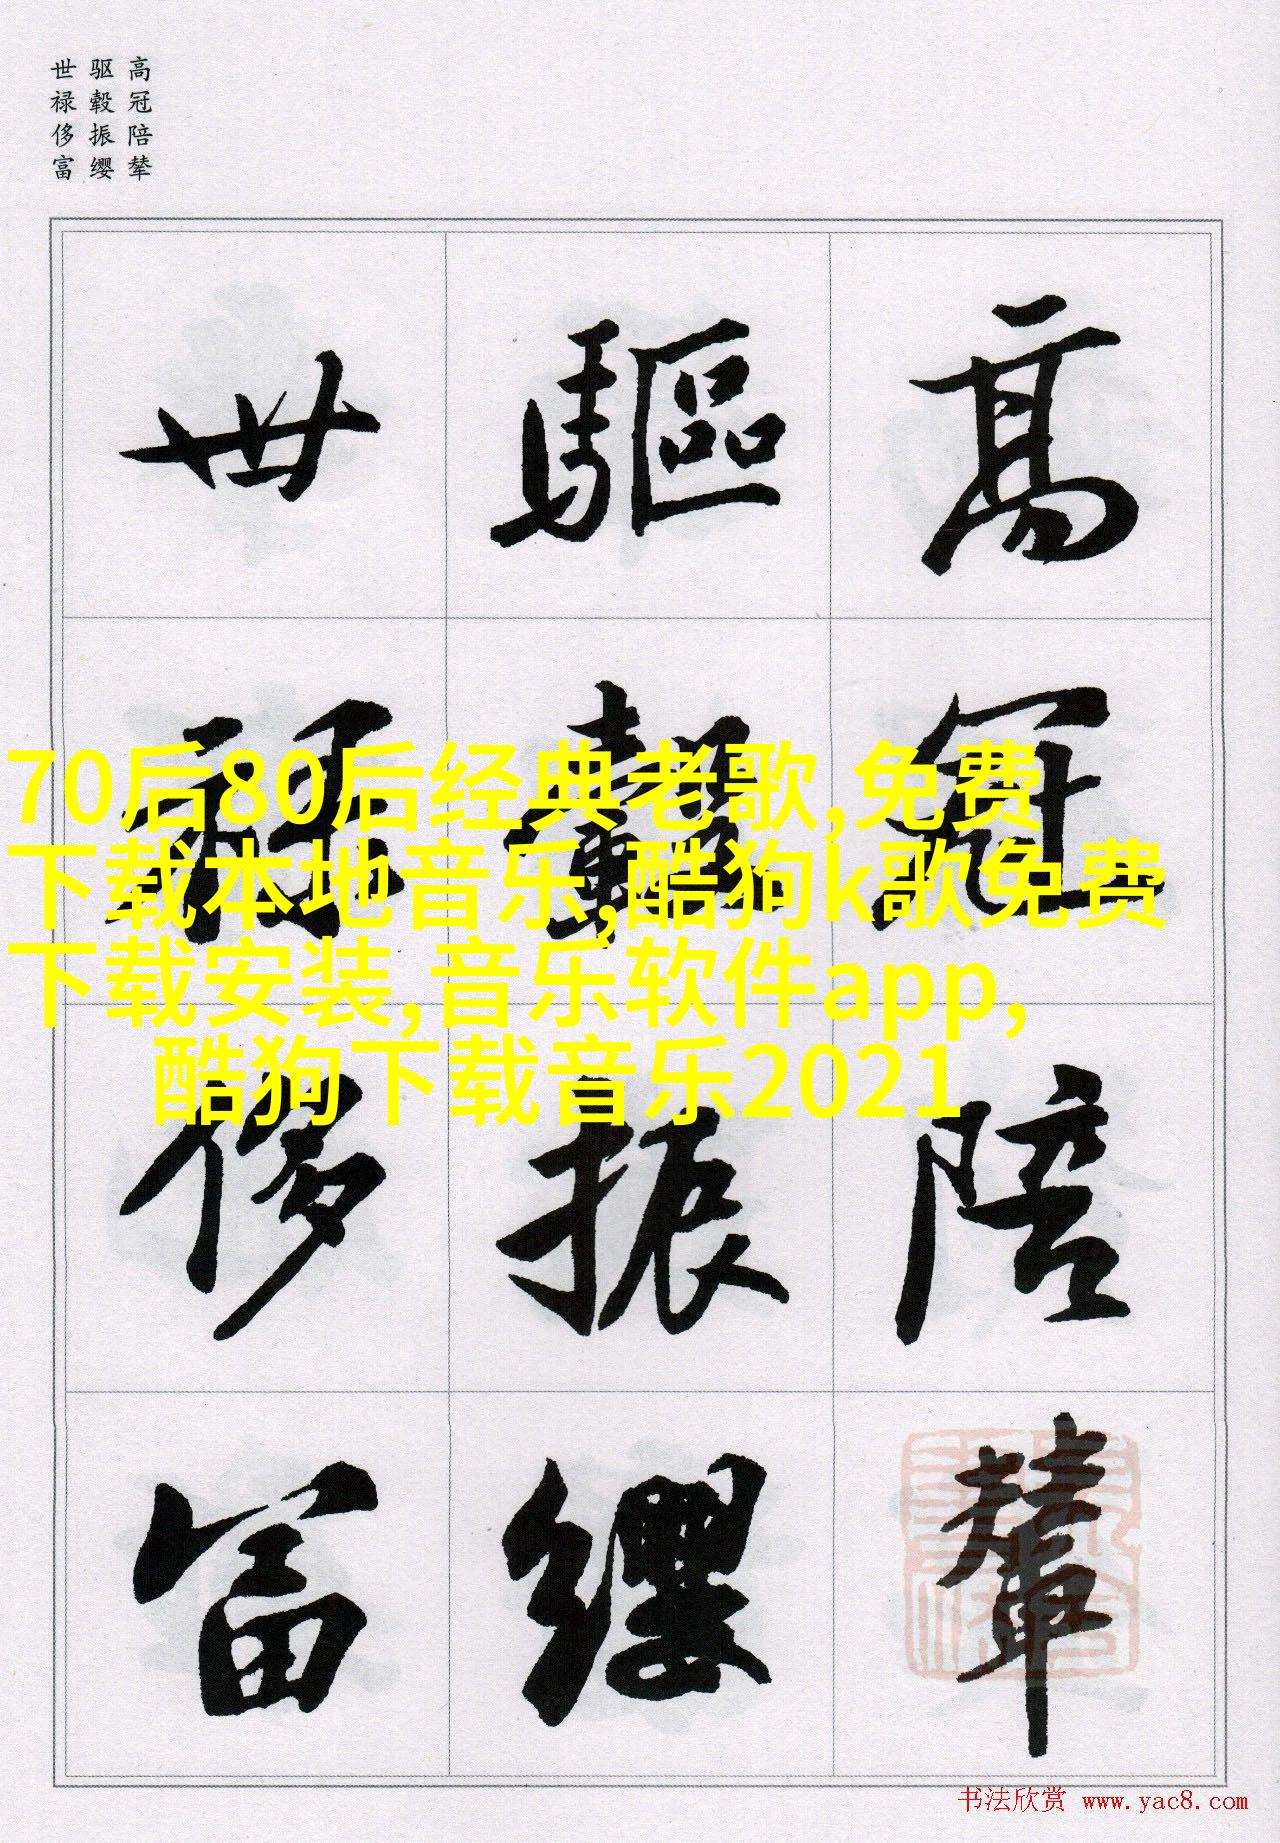 高冠陪辇
驱毂振缨
世禄侈富
高冠陪輦
驅轂振纓
世祿侈富
70后80后经典老歌,免费
下载本地音乐,酷狗k歌免费
下载安装,音乐软件app,
酷狗下载音乐2021
书法欣赏 www.yac8.com